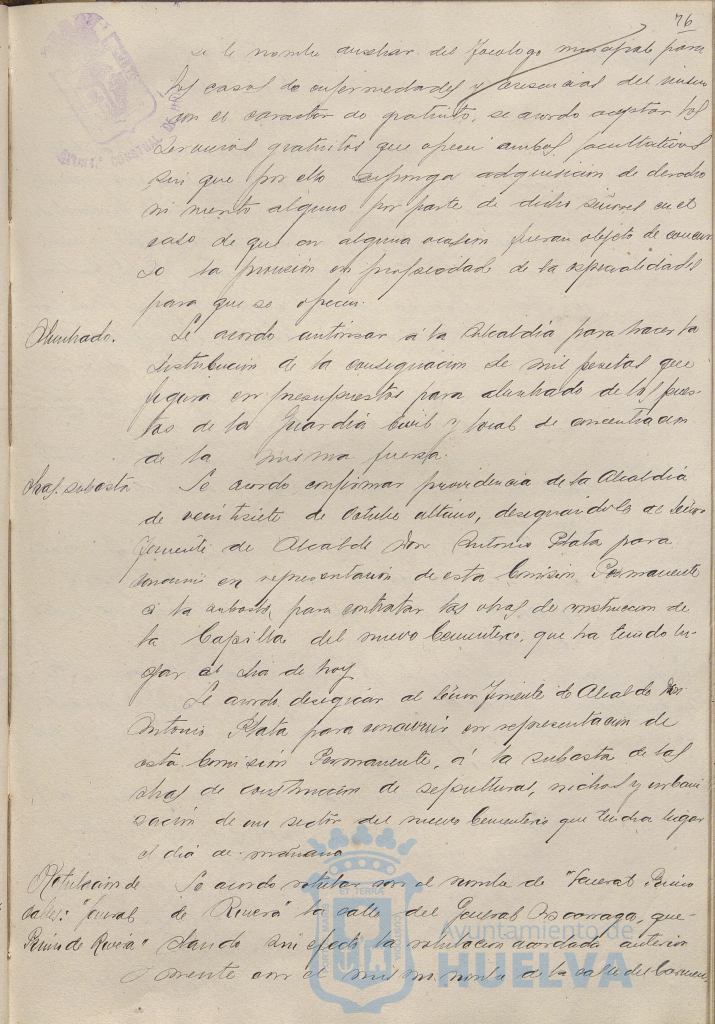 76
se le nombre auxiliar del Tocólogo municipal para
los casos de enfermedades y ausencias del mismo
con el caracter de gratuito, se acordo aceptar los
servicios gratuitos que ofrecen ambos facultativos
sin que por ello suponga adquisicion de derecho
ni merito alguno por parte de dichos señores en el
caso de que en alguna ocasion fueran objeto de concur
so la provision en propiedad de las especialidades
para que se ofrecen.
Alumbrado.
Se acordo autorizar á la Alcaldia para hacer la
distribucion de la consignacion de mil pesetas que
figura en presupuestos para alumbrado de los pues-
tos de la Guardia Civil y local de concentracion
de la misma fuerza.
Obras. subasta
Se acordo confirmar providencia de la Alcaldia
de veintisiete de Octubre ultimo, designando al Señor
Teniente de Alcalde Don Antonio Plata para
concurrir en representacion de esta Comision Permanente
á la subasta para contratar las obras de construccion de
la Capilla del nuevo Cementerio, que ha tenido lu-
gar el dia de hoy
Se acordo designar al Señor Teniente de Alcalde Don
Antonio Plata para concurrir en representacion de
esta Comisión Permanente, á la subasta de las
obras de construccion de sepulturas, nichos y urbani
zación de un sector del nuevo Cementerio que tendra lugar
el dia de mañana
Rotulacion de
calles: "General
Primo de Rivera"
Se acordo rotular con el nombre de "General Primo
de Rivera" la calle del General Azcarraga, que-
dando sin efecto la rotulacion acordada anterior
mente con el mismo nombre de la calle del Carmen,
Ayuntamiento de
HUELVA